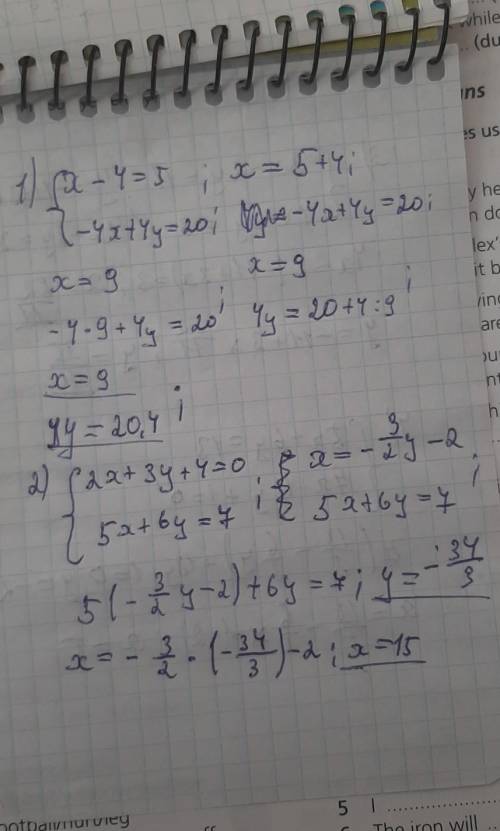 while
(du
ans
es us
y he
n do
lex'
it b
1) { x - 4 = 5 ; x = 5 + 4;
{ -4x + 4y = 20; -4x + 4y = 20;
x = 9 x = 9
-4 · 9 + 4y = 20; 4y = 20 + 4 : 9;
x = 9
yy = 20,4;
2) { 2x + 3y + 4 = 0 ; { x = -3/2 y - 2 ;
{ 5x + 6y = 7 { 5x + 6y = 7
5(-3/2 y - 2) + 6y = 7; y = -34/3
x = -3/2 · (-34/3) - 2; x = 15
5 I
The iron will